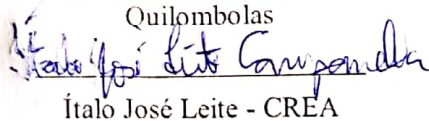 Quilombolas
Ítalo José Leite
Ítalo José Leite - CREA